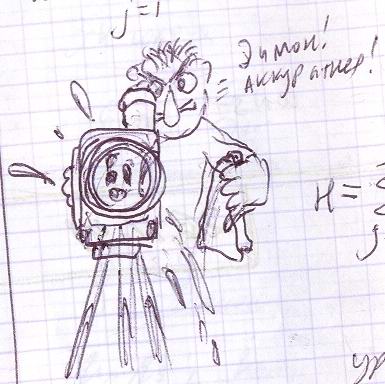 j=1
Димон!
Аккуратнее!
H=
j
ур